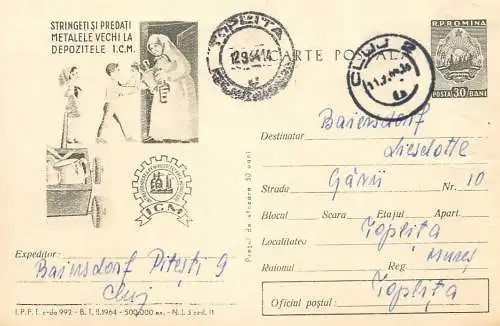 STRINGEȚI ȘI PREDAȚI
METALELE VECHI LA
DEPOZITELE I.C.M.
I.C.M
TOPLIȚA
12.9.64.14
CARTE POȘTALĂ
CLUJ 2
R.P. ROMINA
POSTA 30 BANI
Destinatar Baiersdorf
Lieselotte
Strada Gării Nr. 10
Blocul Scara Etajul Apart.
Localitatea Toplița
Raionul Reg. Mureș
Oficiul poștal: Toplița
Prețul de vînzare 30 bani
Expeditor:
Baiersdorf Pitești 9
Cluj
I.P.F.T. c-da 992 - B.T. 11.1964 - 500.000 ex. - N.I. 3 ord. 11